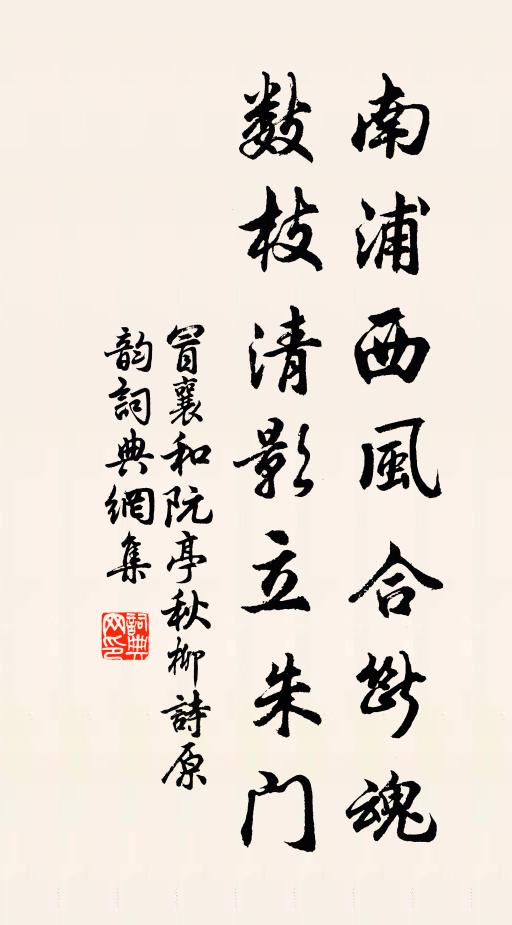 南浦西風合斷魂
数枝清影立朱门
冒襄和阮亭秋柳詩原
韵詞典網集
詞典网印